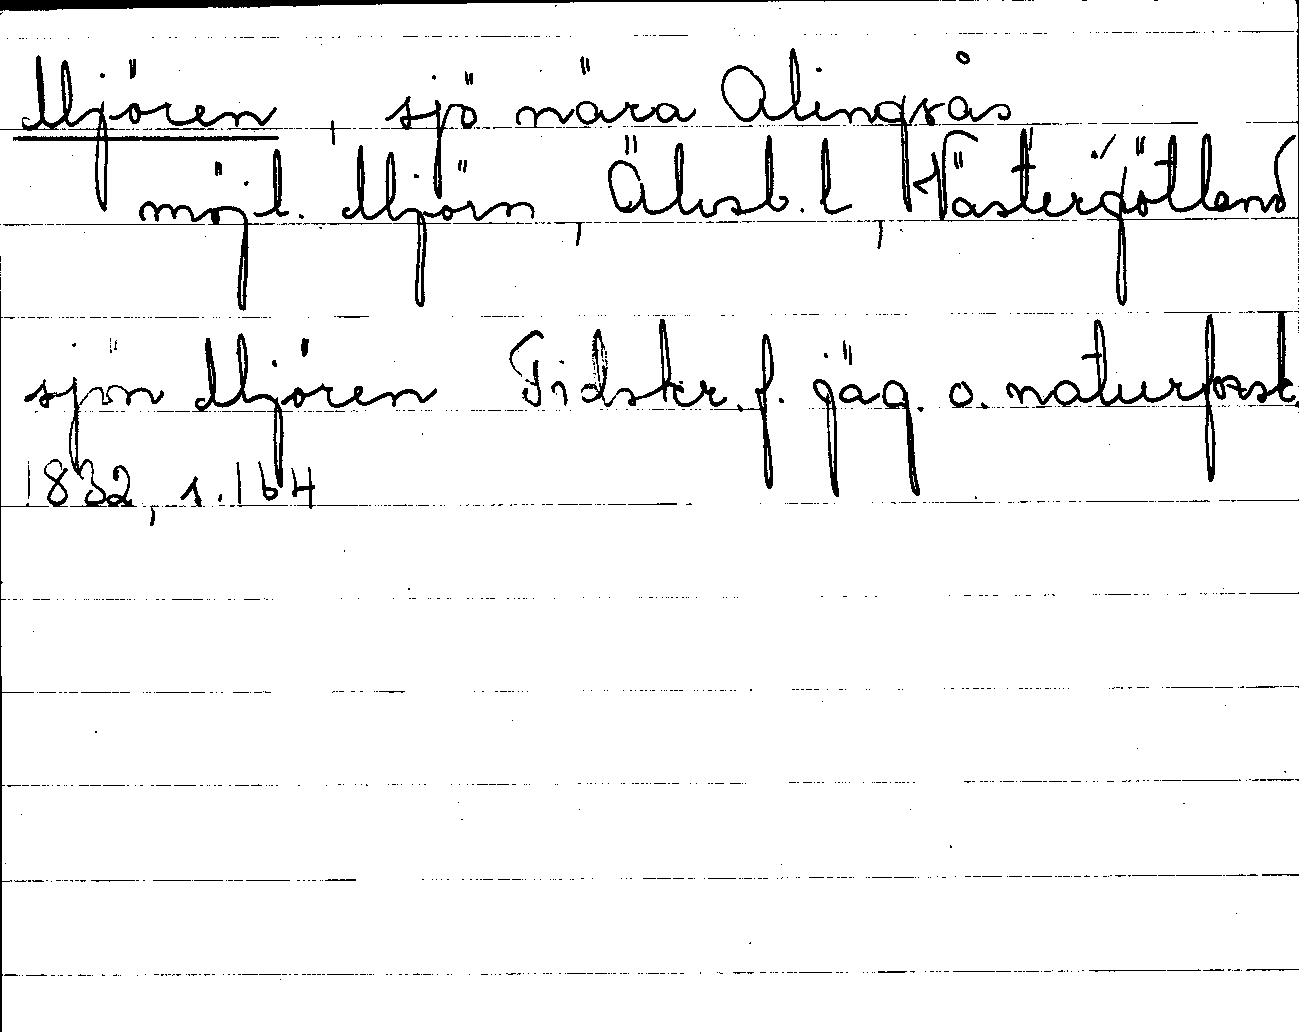 Mjören, sjö nära Alingsås
möjl. Mjörn, Älvsb. l, Västergötland
sjön Mjören Tidskr. f. jäg. o. naturforsk.
1832, s. 164